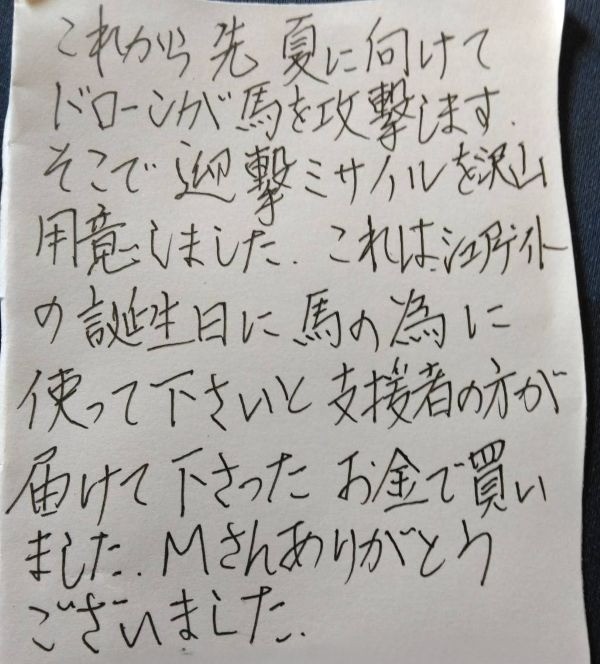 これから先 夏に向けて
ドローンが馬を攻撃します.
そこで迎撃ミサイルを沢山
用意しました. これはシュアゲイト
の誕生日に馬の為に
使って下さいと支援者の方が
届けて下さったお金で買い
ました. Mさんありがとう
ございました.